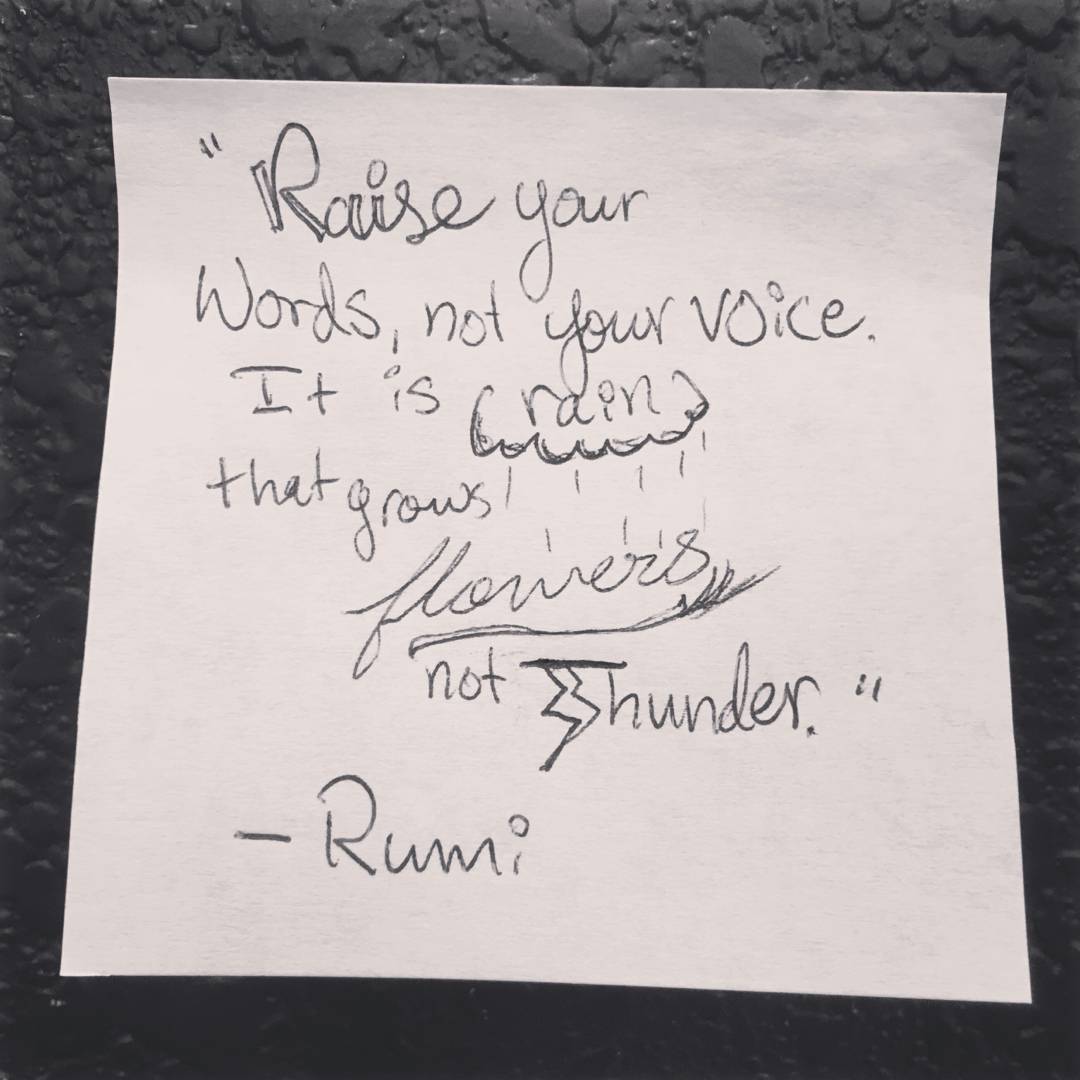 "Raise your
Words, not your voice.
It is rain
that grows
flowers
not Thunder."
- Rumi